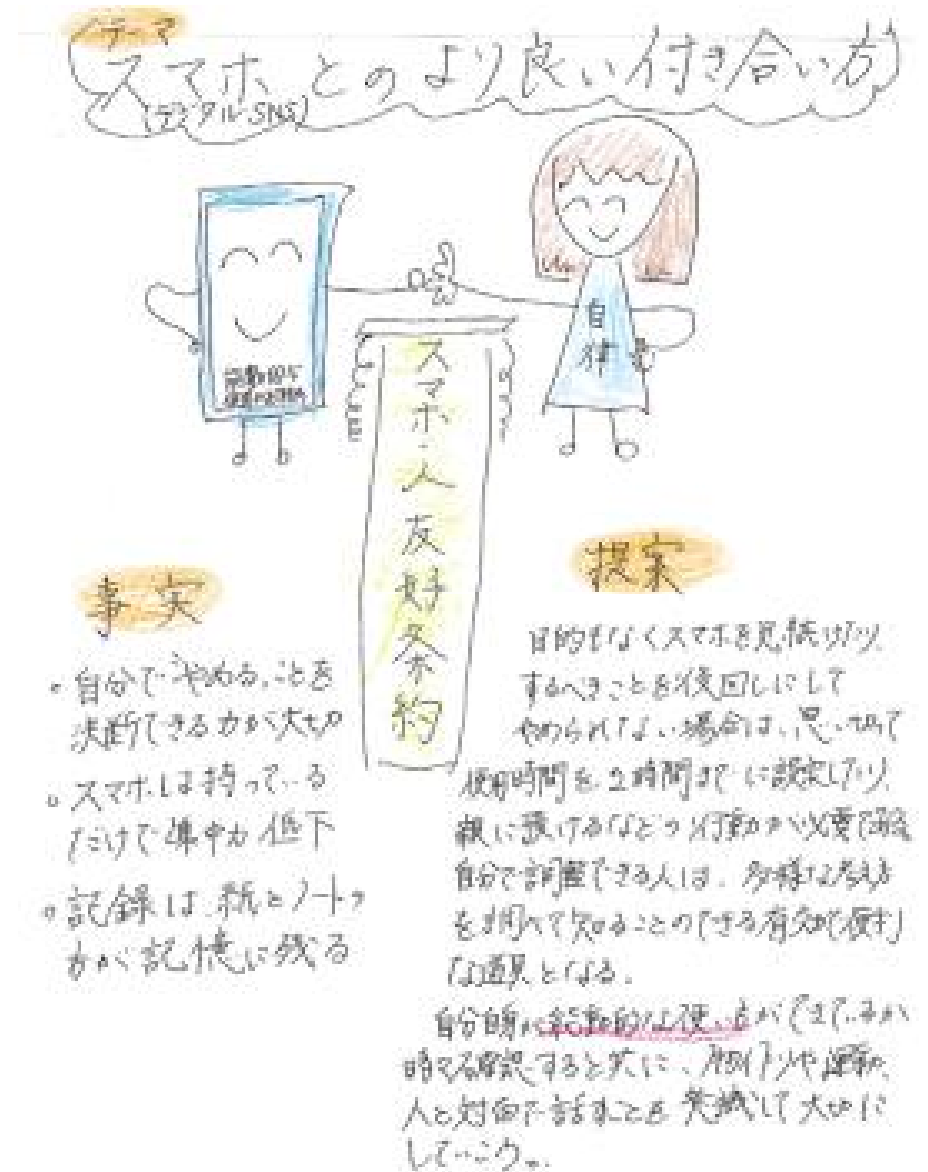 テーマ
スマホとのより良い付き合い方
(デジタル・SNS)
自律
スマホ・人友好条約
事実
・自分で“やめる”ことを
決断できる力が大切
・スマホは持っている
だけで集中力低下
・記録は紙とノートの
方が記憶に残る
提案
目的もなくスマホを見続けたり
するべきことを後回しにして
やめられない場合は、思い切って
使用時間を2時間までに設定したり、
親に預けるなどの行動が必要
自分で調整できる人は、多様な考え方
を調べて知ることのできる有効で便利
な道具となる。
自分自身が能動的な使い方ができているか
時々確認すると共に、や運動、
人と対面で話すことを意識して大切に
していこう。